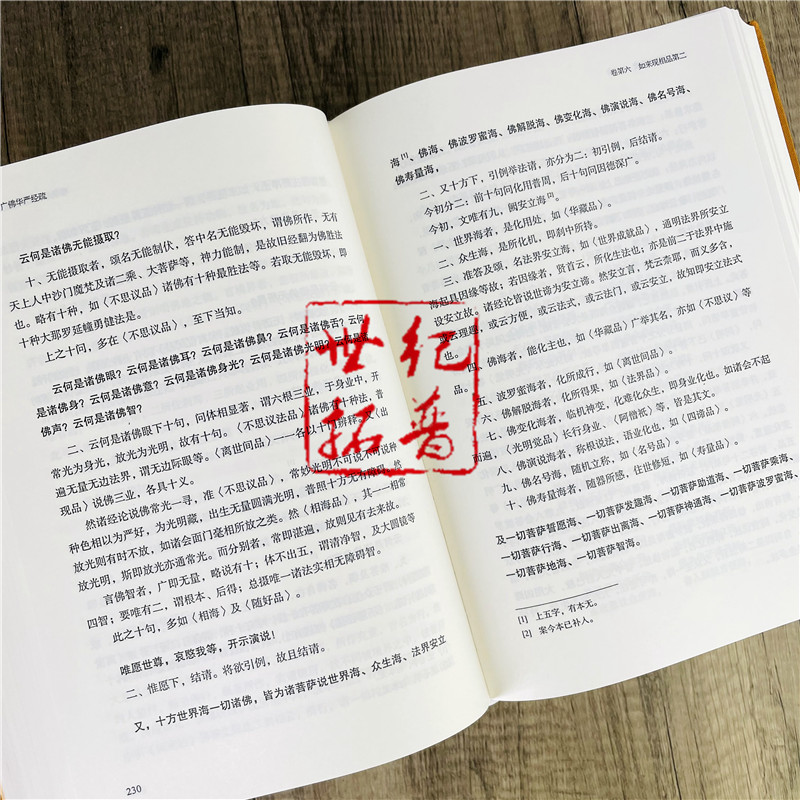 广佛华严经疏
云何是诸佛无能摄取？
十、无能摄取者，颂名无能制伏，答中名无能毁坏，谓佛所作，无有
天上人中沙门魔梵及诸二乘、大菩萨等，神力能制，是故旧经翻为佛胜法
也。略有十种，如〈不思议品〉诸佛有十种最胜法等。若取无能毁坏，即
十种大那罗延幢勇健法是。
上之十问，多在〈不思议品〉，至下当知。
云何是诸佛眼？云何是诸佛耳？云何是诸佛鼻？云何是诸佛舌？云何
是诸佛身？云何是诸佛意？云何是诸佛身光？云何是诸佛光明？云何是
佛声？云何是诸佛智？
二、云何是诸佛眼下十句，问体相显著，谓六根三业，于身业中，开
常光为身光，放光为光明，故有十句。〈不思议法品〉诸佛有十种法，普
遍无量无边法界，谓无边际眼等。〈离世间品〉一一各以十门辨释。又〈出
现品〉说佛三业，各具十义。
然诸经论说佛常光一寻，准〈不思议品〉，常妙光明不可说不可说种
种色相以为严好，为光明藏，出生无量圆满光明，普照十方无有障碍。然
放光则有时不放，如诸会面门毫相所放之类。然〈相海品〉，其一一相常
放光明，斯即放光亦通常光。而分别者，常即湛遍，放则见有去来故。
言佛智者，广即无量，略说有十；体不出五，谓清净智，及大圆镜等
四智；要唯有二，谓根本、后得；总摄唯一诸法实相无障碍智。
此之十句，多如〈相海〉及〈随好品〉。
唯愿世尊，哀愍我等，开示演说！
二、惟愿下，结请。将欲引例，故且结请。
又，十方世界海一切诸佛，皆为诸菩萨说世界海、众生海、法界安立
230
卷第六 如来现相品第二
海[1]、佛海、佛波罗蜜海、佛解脱海、佛变化海、佛演说海、佛名号海、
佛寿量海，
二、又十方下，引例举法请，亦分为二：初引例，后结请。
今初分二：前十句问化用普周，后十句问因德深广。
今初，文唯有九，阙安立海[2]。
一、世界海者，是化用处，如〈华藏品〉。
二、众生海，是所化机，即刹中所持。
三、准答及颂，名法界安立海，如〈世界成就品〉，通明法界所安立
海起具因缘等故；若因缘者，贤首云，所化生法也；亦是宿二于法界中施
设安立故。诸经论皆说世谛为安立谛。然安立言，梵云奈耶，而义多含，
或云理趣，或云方便，或云法式，或云法门，或云安立，故知即安立法式
也。
四、佛海者，能化主也，如〈华藏品〉广举其名，亦如〈不思议〉等
品。
五、波罗蜜海者，化所成行，如〈离世间品〉。
六、佛解脱海者，化所得果，如〈法界品〉。
七、佛变化海者，临机神变，化难化众生，即身业化也。如诸会不起
而遍，〈光明觉品〉长行身业、〈阿僧祇〉等，皆是其文。
八、佛演说海者，称根说法，语业化也，如〈四谛品〉。
九、佛名号海，随机立称，如〈名号品〉。
十、佛寿量海者，随器所感，住世修短，如〈寿量品〉。
及一切菩萨誓愿海、一切菩萨发趣海、一切菩萨助道海、一切菩萨乘海、
一切菩萨行海、一切菩萨出离海、一切菩萨神通海、一切菩萨波罗蜜海、
一切菩萨地海、一切菩萨智海。
[1] 上五字，有本无。
[2] 案今本已补入。
世纪
拓普